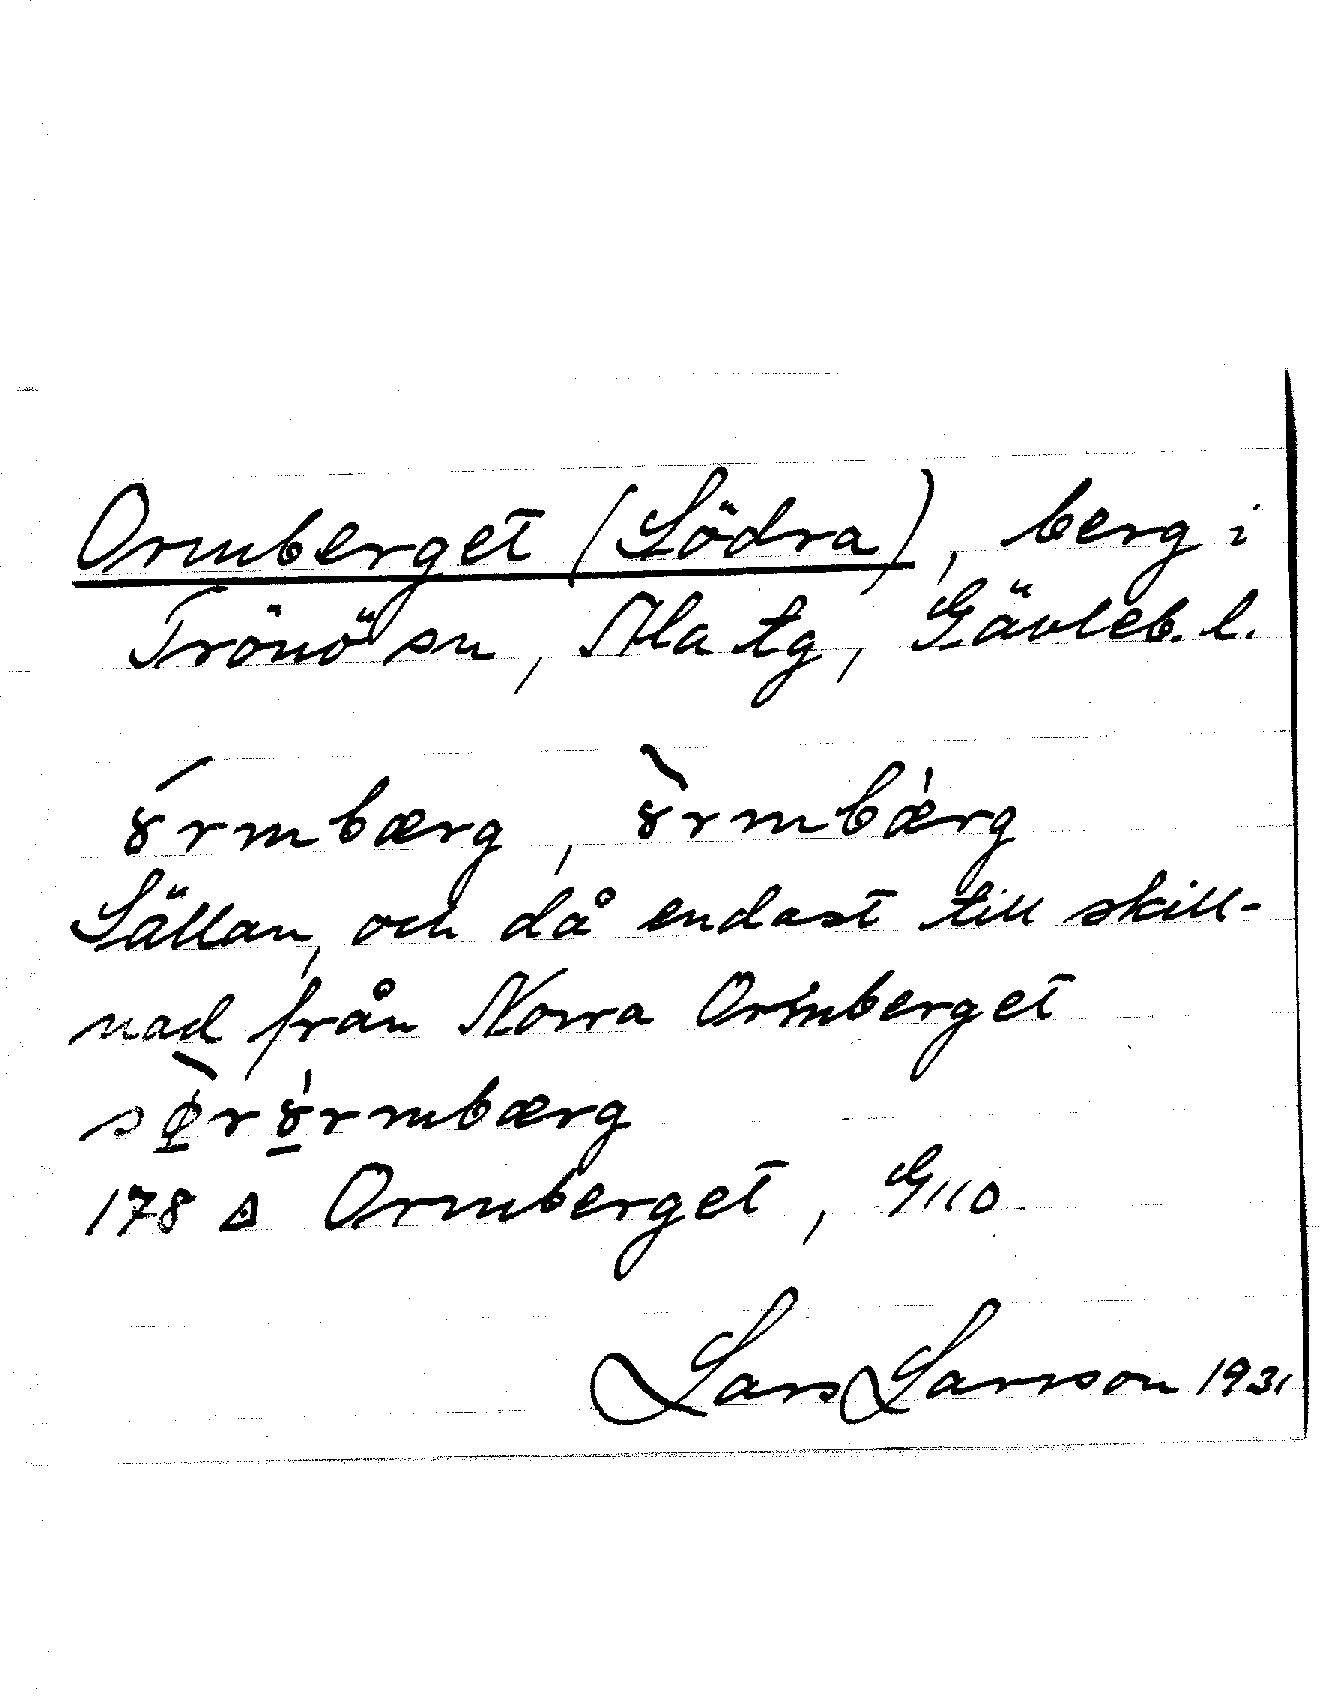 Ormberget (Södra), berg i
Trönö sn, Ala tg, Gävleb. l.
ȣ́rmbærg, ȣ̀rmbæ̍rg
Sällan, och då endast till skill-
nad från Norra Ormberget
sø̱̀rȣ̱̍rmbærg
178 Δ Ormberget, G110
Lars Larsson 1931